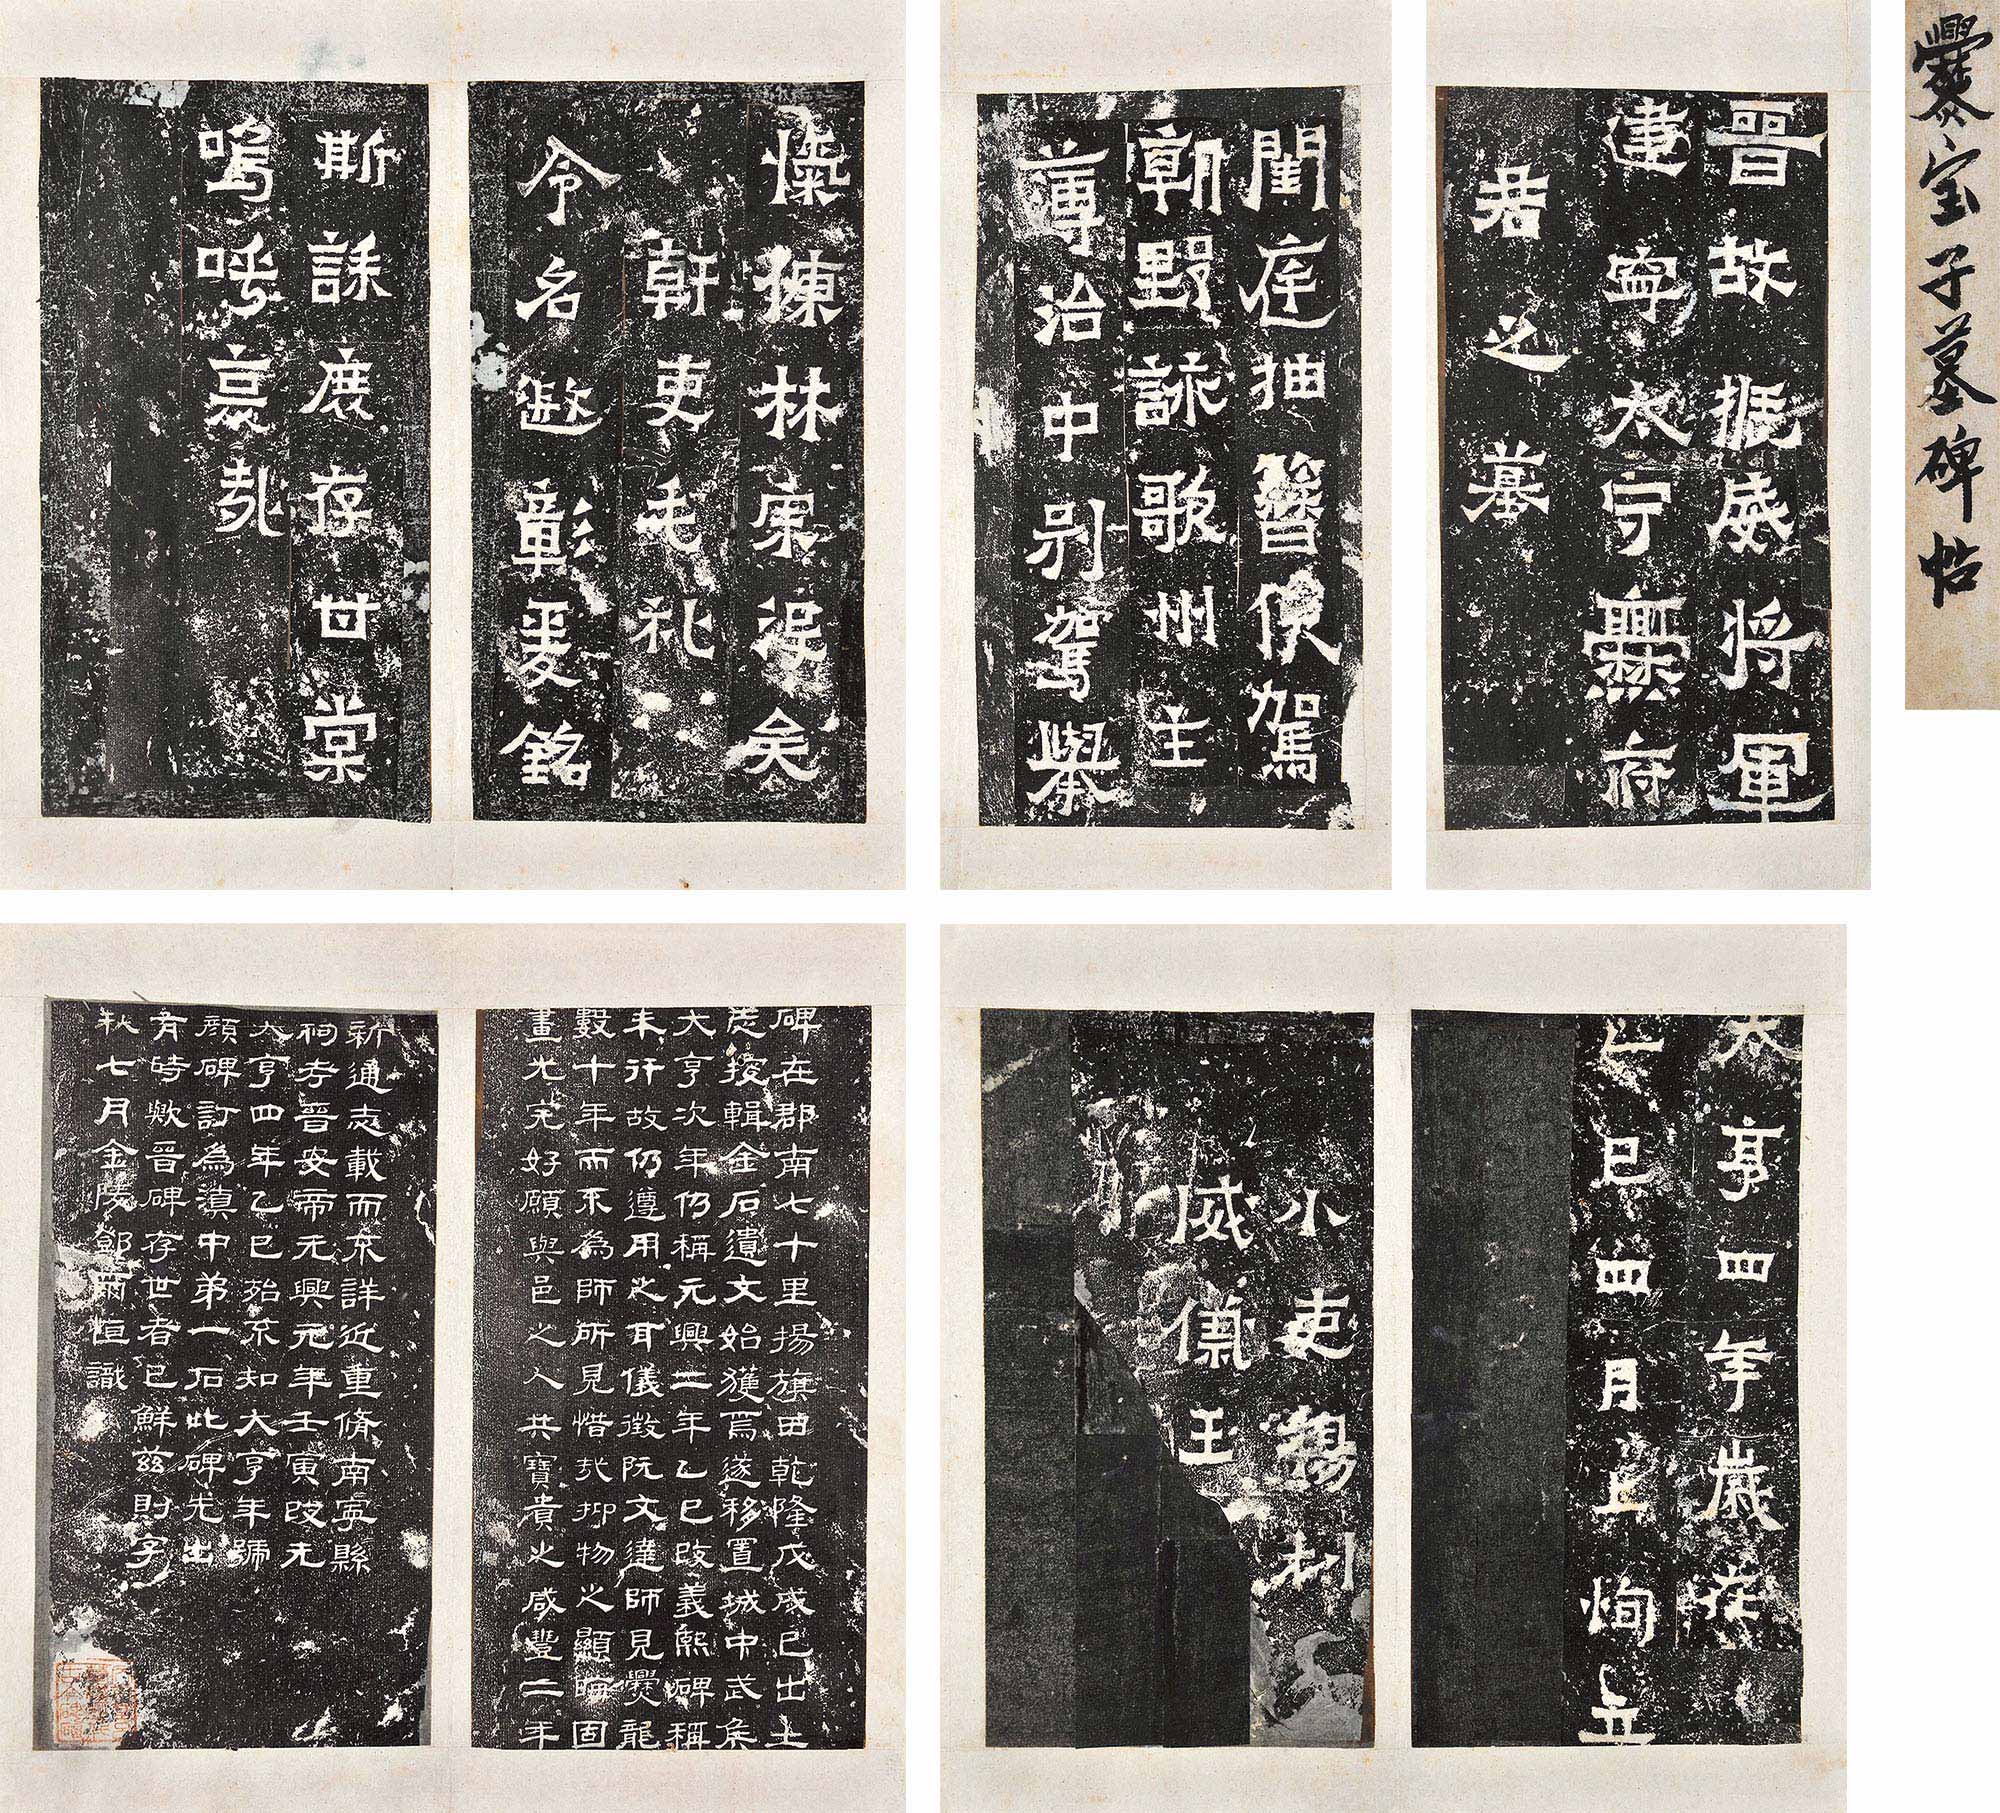 爨宝子墓碑帖
晉故振威將軍
建寧太守爨府
君之墓
閨庭抽簪俟駕
朝野詠歌州主
簿治中別駕舉
慄揀林宗没矣
幹吏毛礼
令名遐彰爰銘
斯誄庶存甘棠
嗚呼哀哉
太亨四年歲在
乙巳四月上恂立
小吏楊利
威儀王
碑在郡南七十里揚旗田乾隆戊戌已出土
新通志載而不詳近重脩南寧縣
志搜輯金石遺文始獲焉遂移置城中武侯
祠考晉安帝元興元年壬寅改元
大亨次年仍稱元興二年乙巳改義熙碑稱
大亨四年乙巳殆不知大亨年號
未行故仍遵用之耳儀徵阮文達師見爨龍
顏碑訂為滇中第一石此碑先出
數十年而不為師所見惜哉抑物之顯晦固
有時歟晉碑存世者已鮮茲則字
畫尤完好願與邑之人共寶貴之咸豐二年
秋七月金陵鄧爾恒識